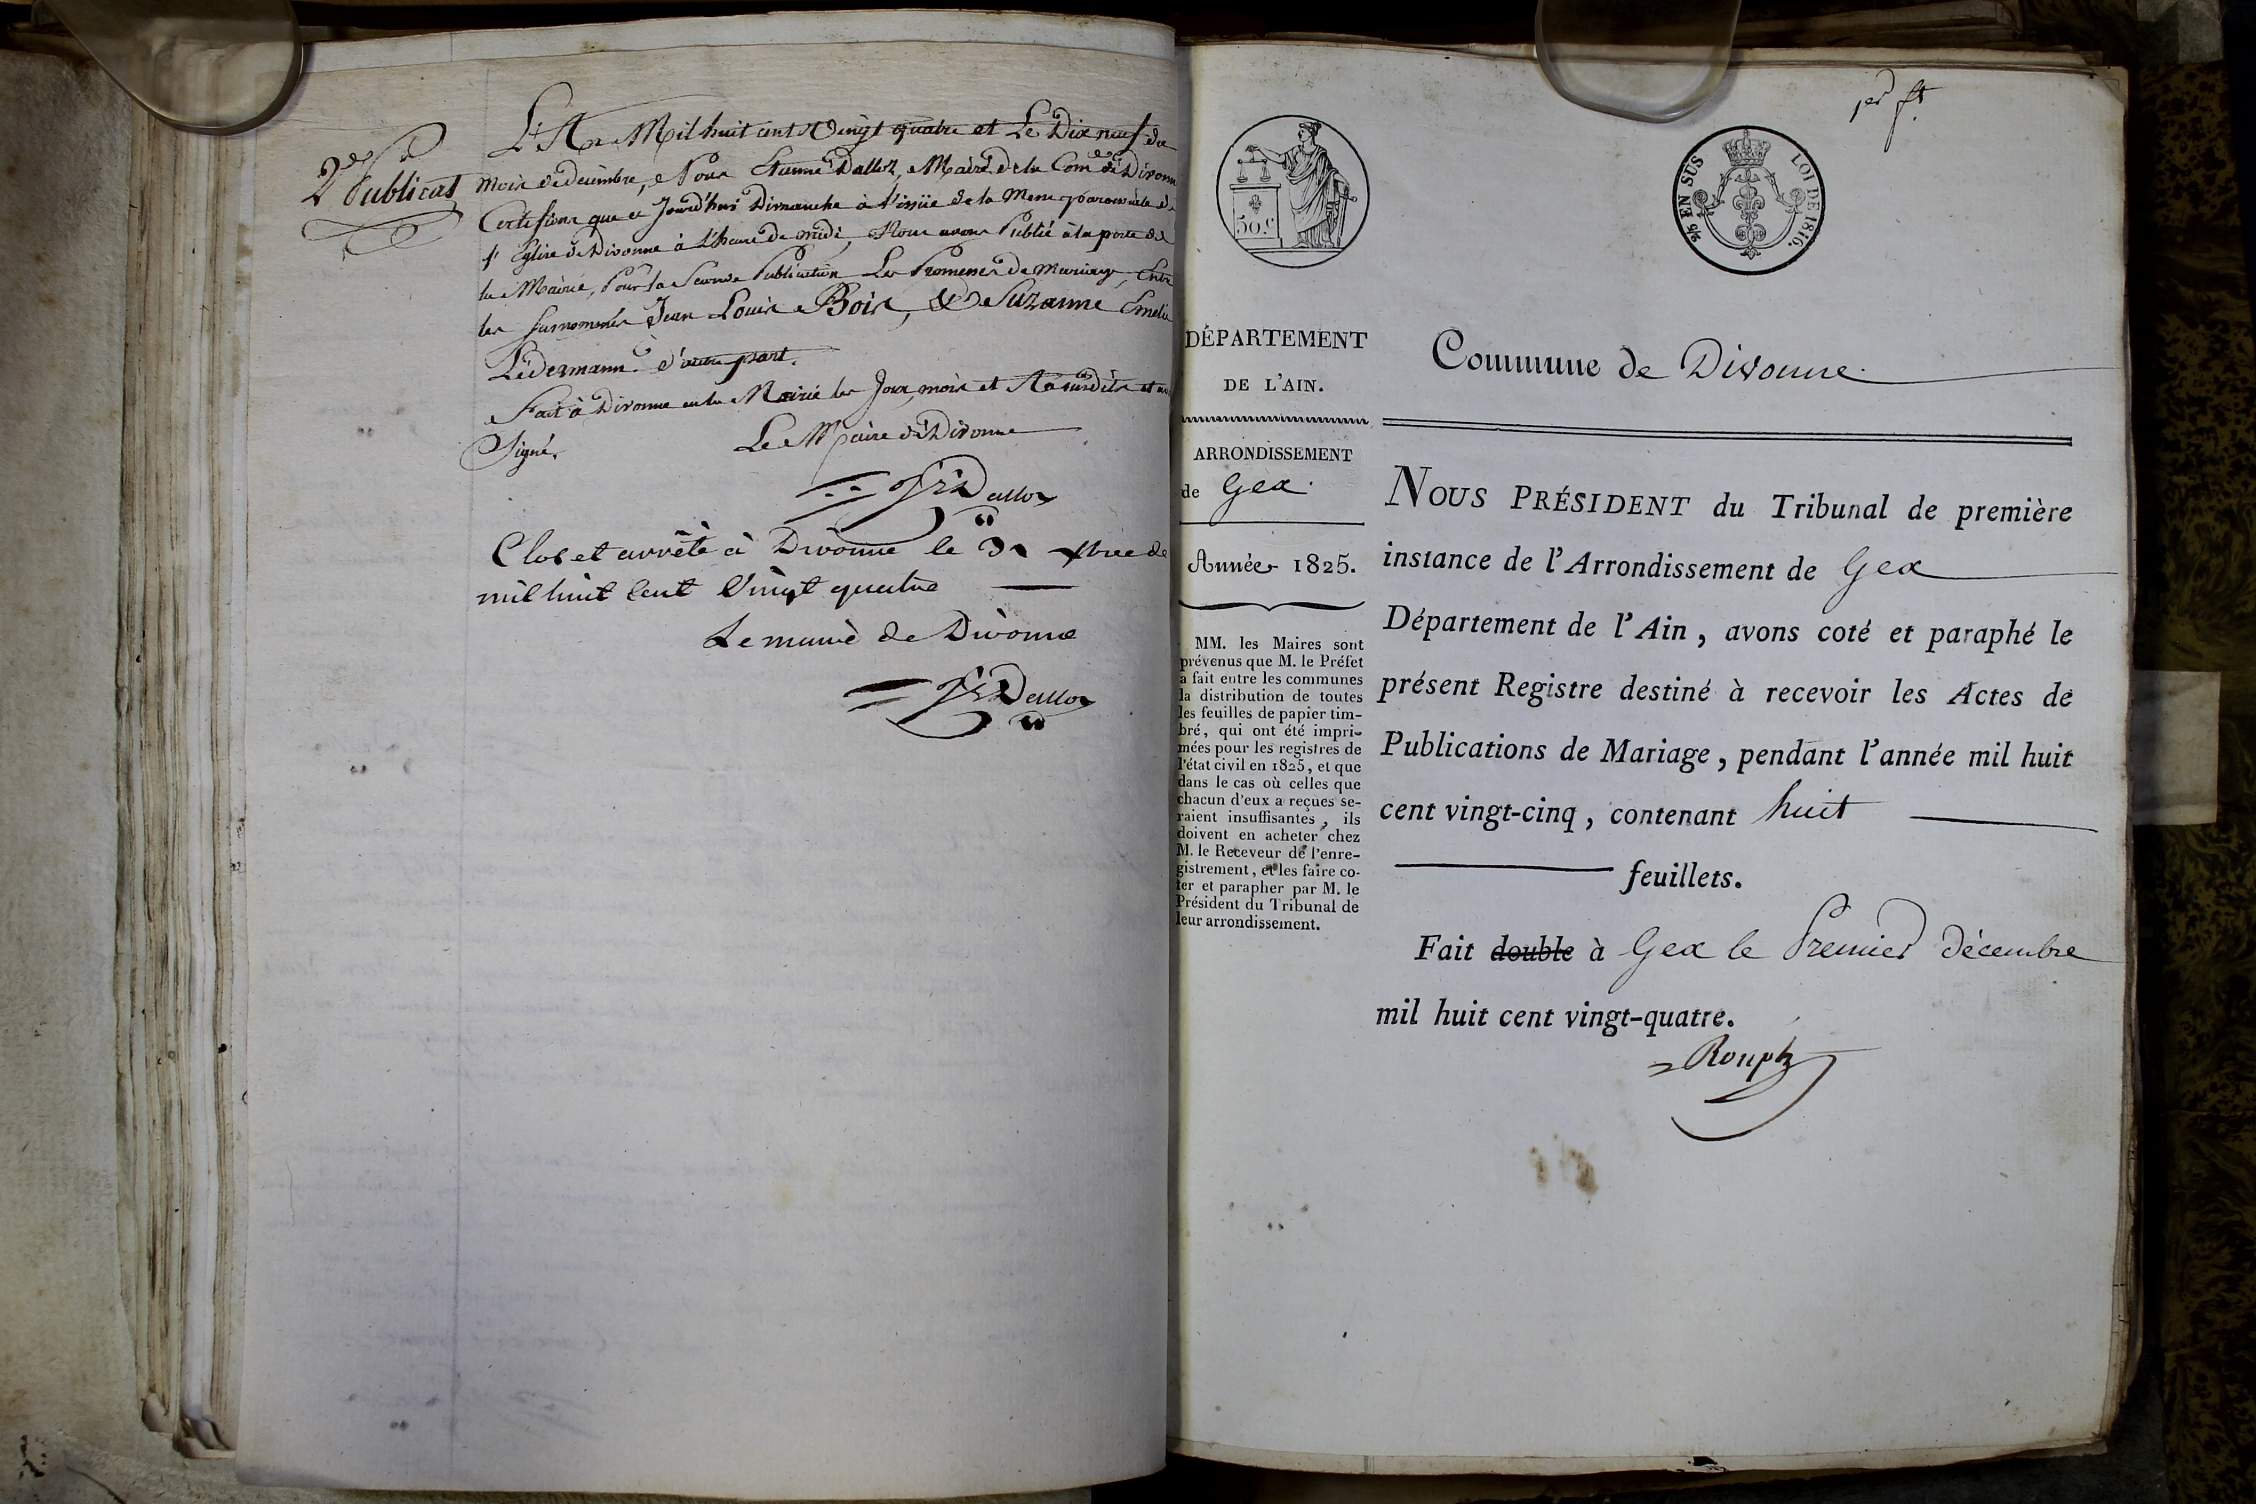 2e Publicat
L'An Mil huit cent Vingt quatre et Le Dix neuf du
mois de décembre, Nous Etienne Dalloz, Maire de la Come de Divonne
Certifions que ce Jourd'hui Dimanche à l'issüe de la Messe paroissiale de
l'Eglise de Divonne à l'heure de midi, Nous avons Publié à la porte de
la Mairie, Pour la Seconde Publication Les Promesses de Mariage, Entre
les surnommés Jean Louis Bois, & De Suzanne Emelie
Lédermann d'autre part.
Fait à Divonne en la Mairie les Jour, mois et An susdits et
Signé.
Le Maire de Divonne
Dalloz
Clos et arrêté à Divonne le 31 xbre de
mil huit Cent Vingt quatre
Le maire de Divonne
Dalloz
1er ft.
50 c
2/5 EN SUS
LOI DE 1816.
DÉPARTEMENT
DE L'AIN.
ARRONDISSEMENT
de Gex.
Année 1825.
MM. les Maires sont
prévenus que M. le Préfet
a fait entre les communes
la distribution de toutes
les feuilles de papier tim-
bré, qui ont été impri-
mées pour les registres de
l'état civil en 1825, et que
dans le cas où celles que
chacun d'eux a reçues se-
raient insuffisantes, ils
doivent en acheter chez
M. le Receveur de l'enre-
gistrement, et les faire co-
ter et parapher par M. le
Président du Tribunal de
leur arrondissement.
Commune de Divonne.
NOUS PRÉSIDENT du Tribunal de première
instance de l'Arrondissement de Gex
Département de l'Ain, avons coté et paraphé le
présent Registre destiné à recevoir les Actes de
Publications de Mariage, pendant l'année mil huit
cent vingt-cinq, contenant huit
feuillets.
Fait double à Gex le Premier décembre
mil huit cent vingt-quatre.
Rouph